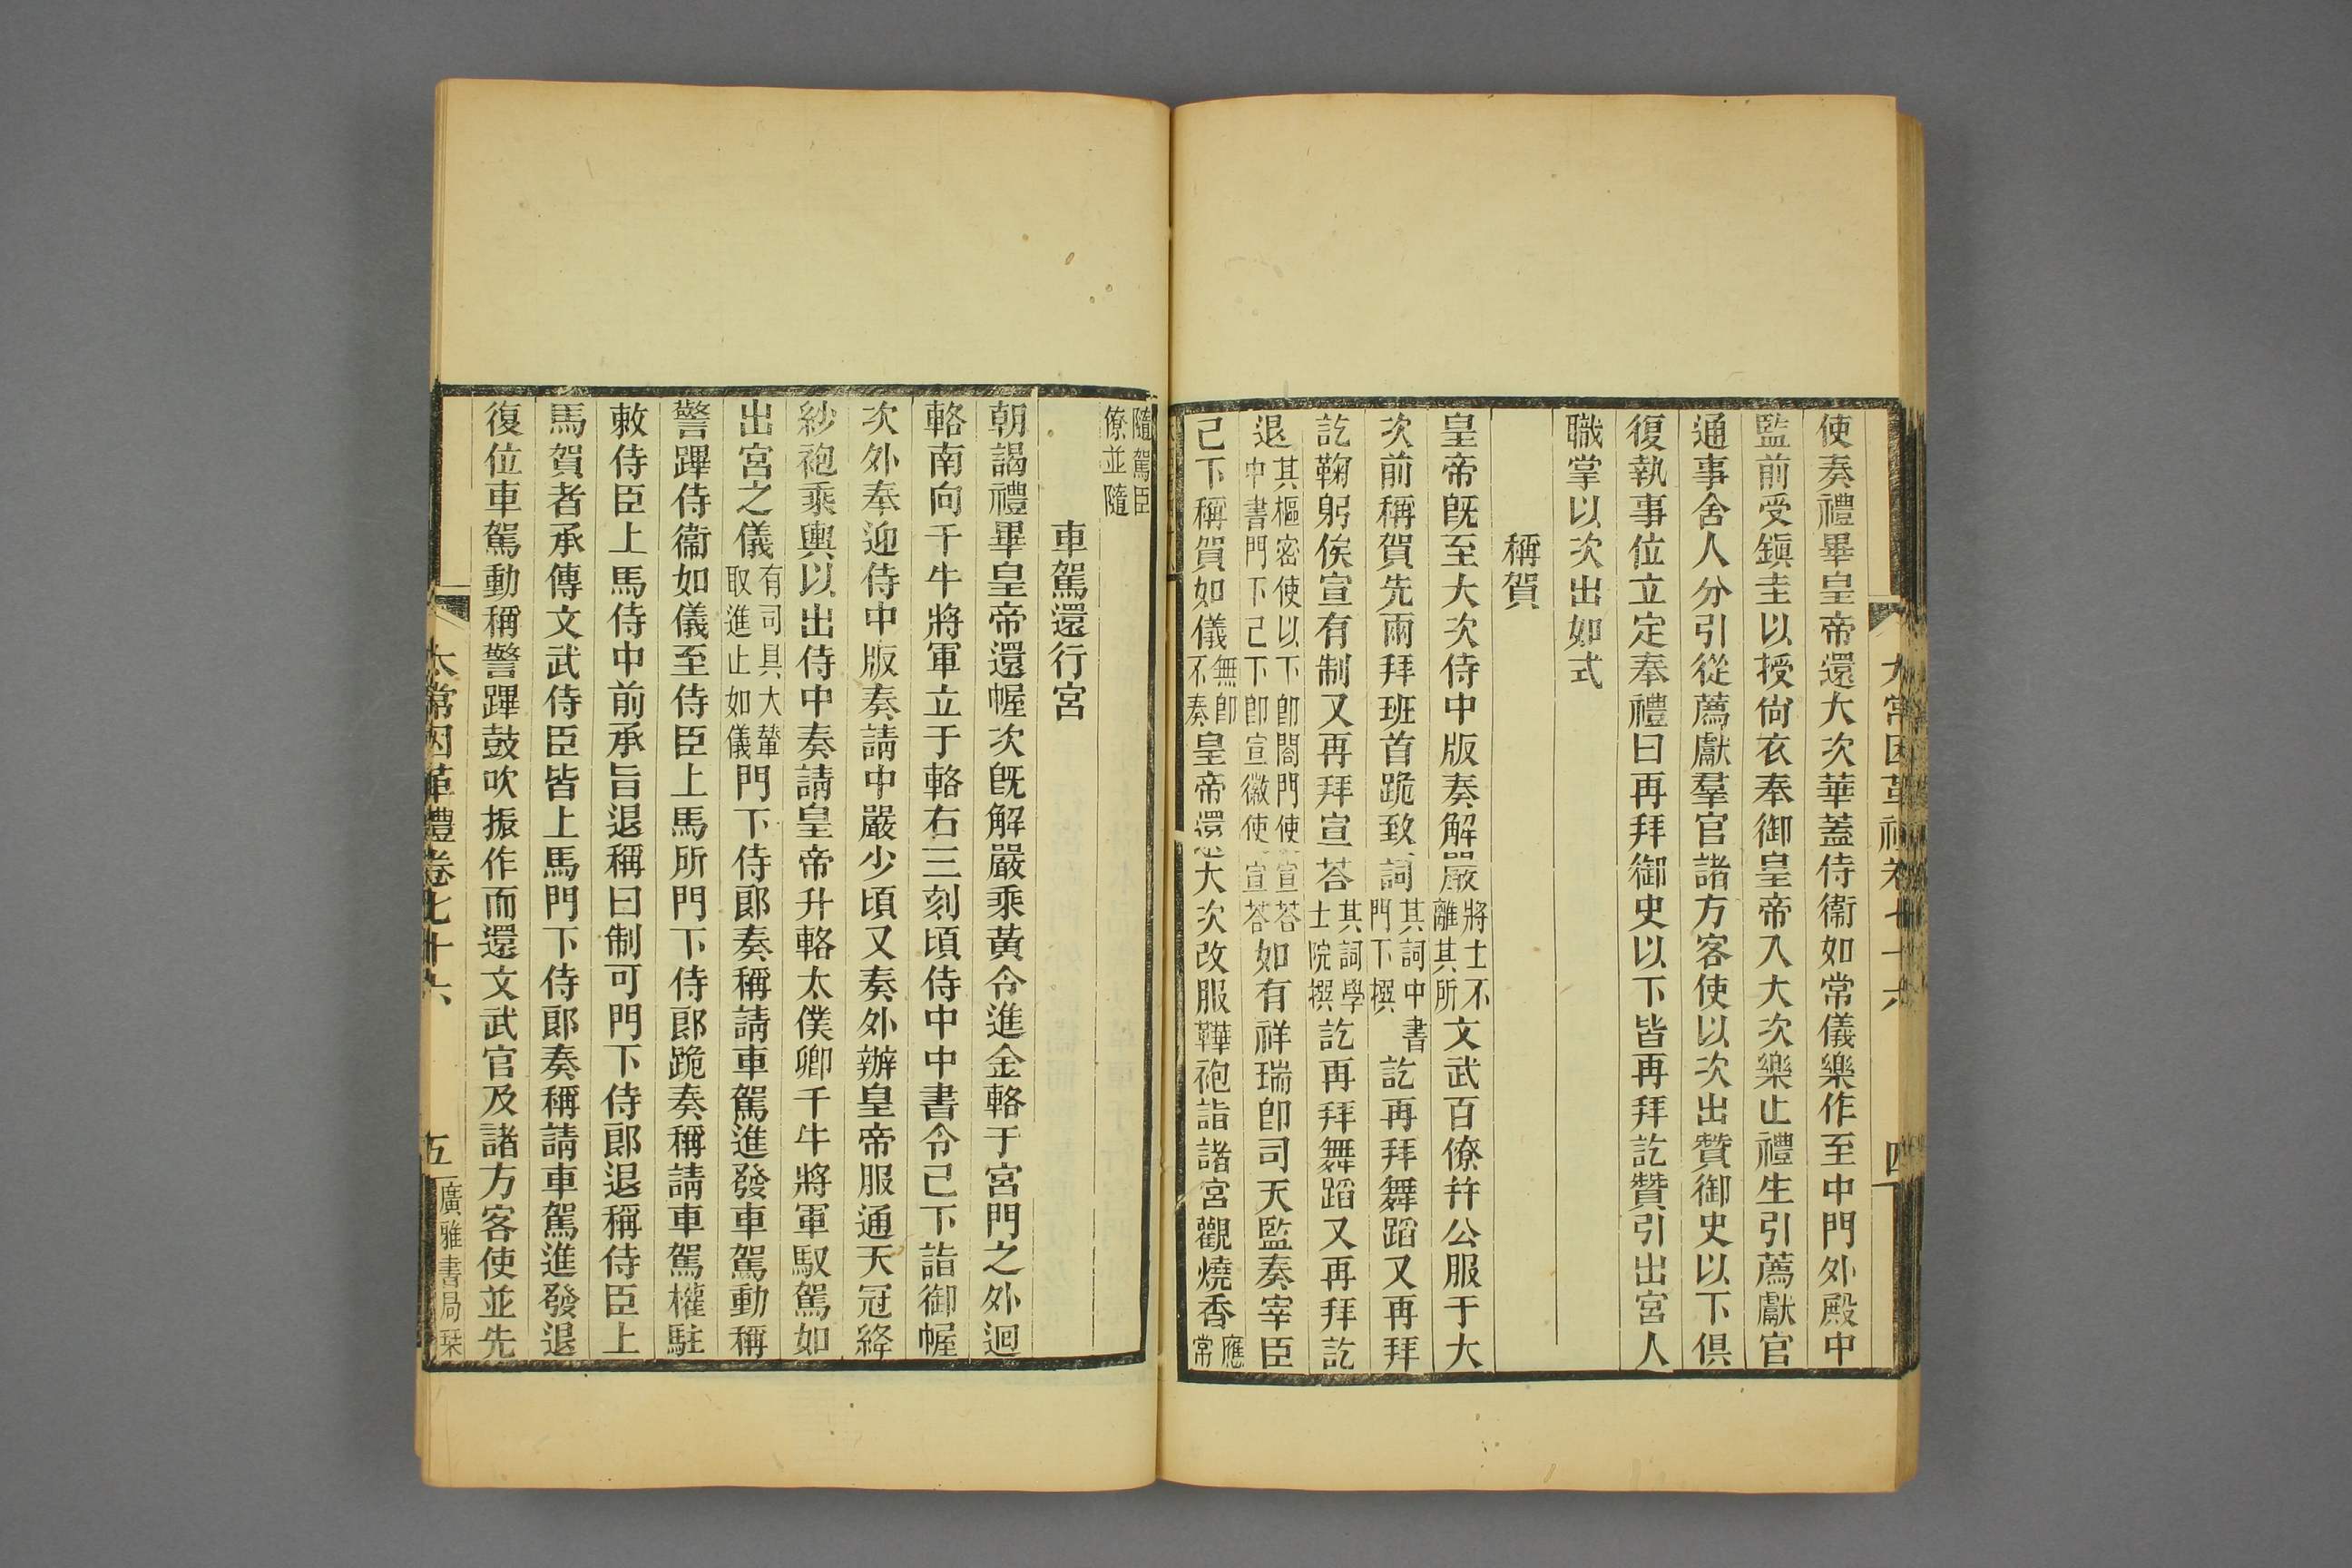 使奏禮畢皇帝還大次華蓋侍衞如常儀樂作至中門外殿中
監前受鎭圭以授尙衣奉御皇帝入大次樂止禮生引薦獻官
通事舍人分引從薦獻羣官諸方客使以次出贊御史以下俱
復執事位立定奉禮曰再拜御史以下皆再拜訖贊引出宮人
職掌以次出如式
稱賀
皇帝旣至大次侍中版奏解嚴將士不離其所文武百僚幷公服于大
次前稱賀先兩拜班首跪致詞其詞中書門下撰訖再拜舞蹈又再拜
訖鞠躬俟宣有制又再拜宣荅其詞學士院撰訖再拜舞蹈又再拜訖
退其樞密使以下卽閤門使宣荅中書門下已下卽宣徽使宣荅如有祥瑞卽司天監奏宰臣
已下稱賀如儀無卽不奏皇帝還大次改服鞾袍詣諸宮觀燒香應常
隨駕臣僚並隨
車駕還行宮
朝謁禮畢皇帝還幄次旣解嚴乘黃令進金輅于宮門之外迴
輅南向千牛將軍立于輅右三刻頃侍中中書令已下詣御幄
次外奉迎侍中版奏請中嚴少頃又奏外辦皇帝服通天冠絳
紗袍乘輿以出侍中奏請皇帝升輅太僕卿千牛將軍馭駕如
出宮之儀有司具大輦取進止如儀門下侍郎奏稱請車駕進發車駕動稱
警蹕侍衞如儀至侍臣上馬所門下侍郎跪奏稱請車駕權駐
敕侍臣上馬侍中前承旨退稱曰制可門下侍郎退稱侍臣上
馬賀者承傳文武侍臣皆上馬門下侍郎奏稱請車駕進發退
復位車駕動稱警蹕鼓吹振作而還文武官及諸方客使並先
太常因革禮卷七十六
五
廣雅書局栞